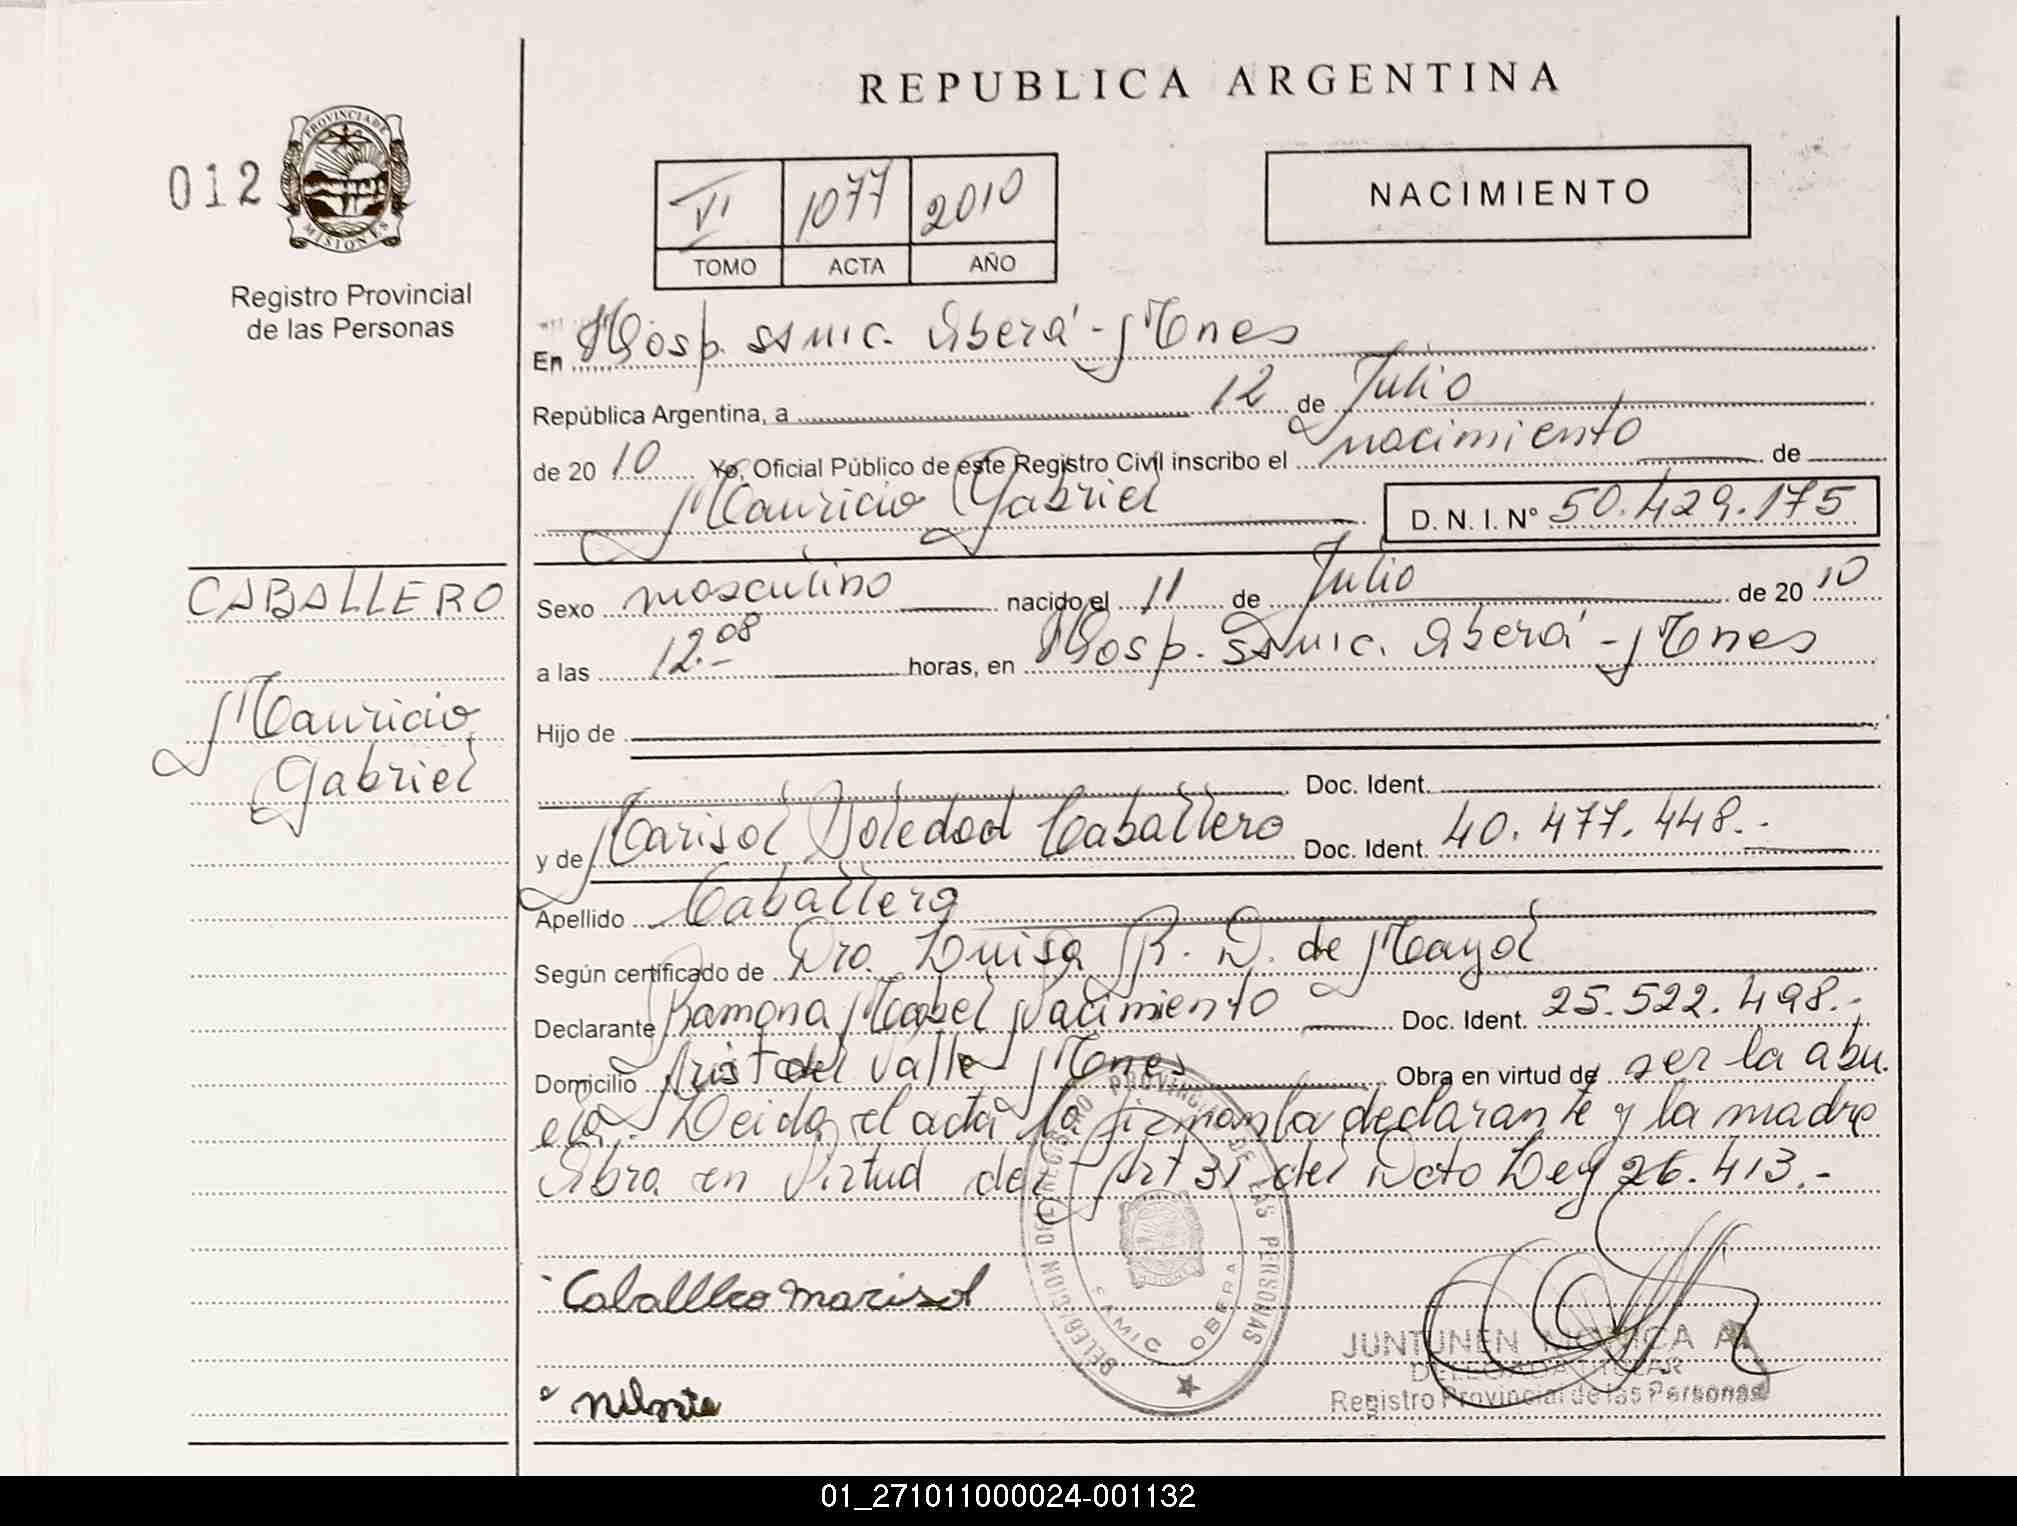 REPUBLICA ARGENTINA
012
PROVINCIA DE
MISIONES
Registro Provincial
de las Personas
VI 1077 2010
TOMO ACTA AÑO
NACIMIENTO
En Hosp. SAMIC. Oberá - Mnes
República Argentina, a 12 de Julio
de 2010 Yo, Oficial Público de este Registro Civil inscribo el nacimiento de
Mauricio Gabriel D. N. I. N° 50.429.175
CABALLERO
Mauricio
Gabriel
Sexo masculino nacido el 11 de Julio de 2010
a las 12.08 horas, en Hosp. SAMIC. Oberá - Mnes
Hijo de
Doc. Ident.
y de Marisol Soledad Caballero Doc. Ident. 40.477.448.-
Apellido Caballero
Según certificado de Dra. Luisa R. D. de Mayol
Declarante Ramona Mabel Nacimiento Doc. Ident. 25.522.498.-
Domicilio Arist del Valle Mnes Obra en virtud de ser la abu.
ela. Leida el acta la firman la declarante y la madre
Obra en Virtud del Art 31 del Dcto Ley 26.413.-
Caballero Marisol
DELEGACION DEL REGISTRO PROVINCIAL DE LAS PERSONAS
SAMIC OBERA
JUNTUNEN MONICA A.
DELEGADA TITULAR
Registro Provincial de las Personas
01_271011000024-001132